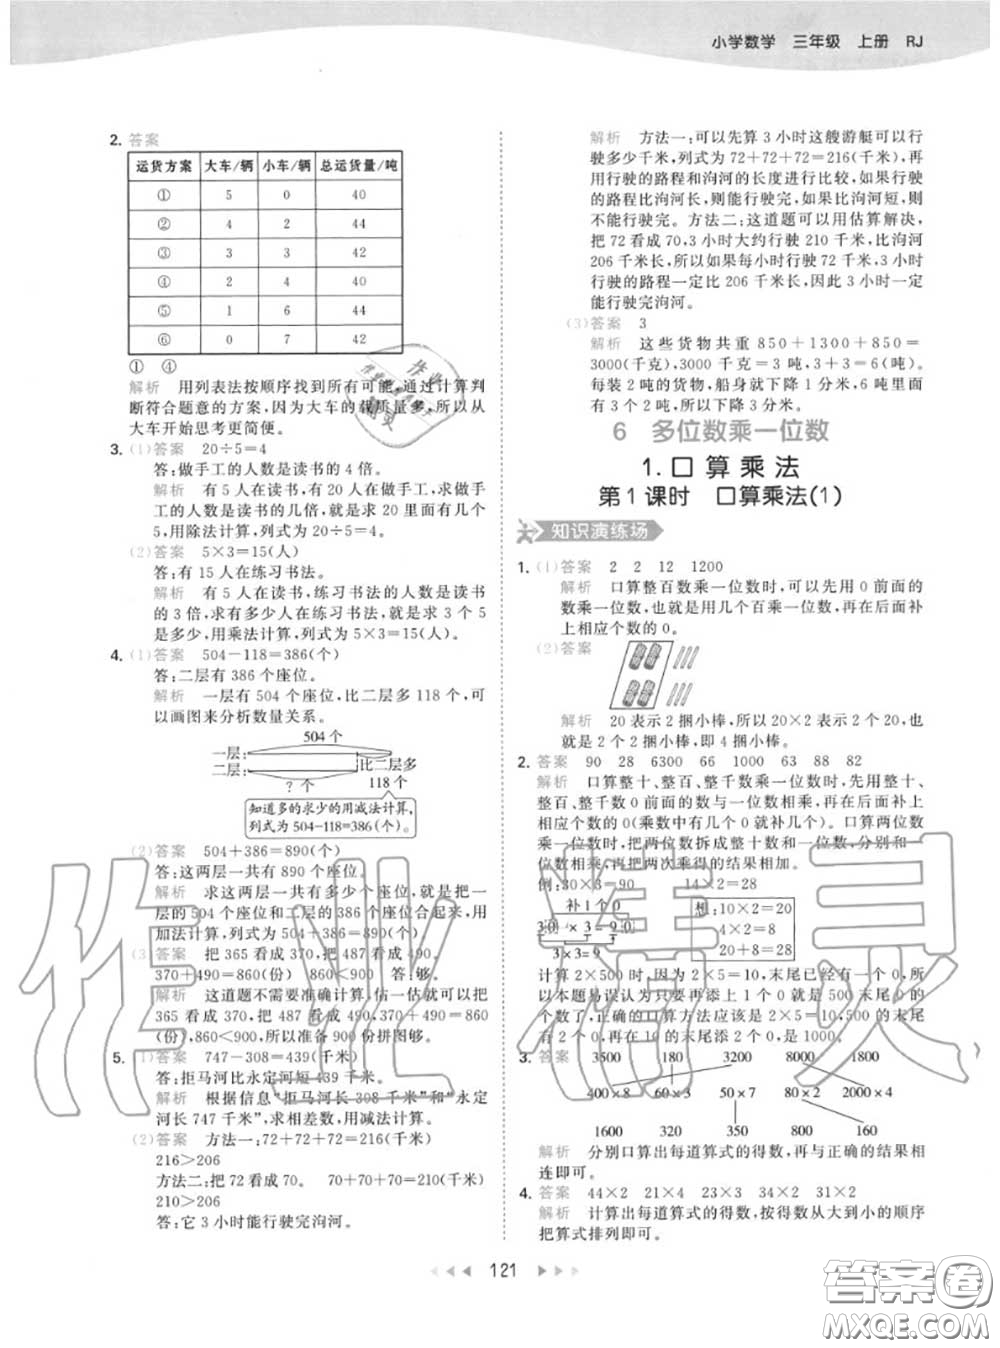 小学数学　三年级　上册　RJ
2. 答案
运货方案 大车/辆 小车/辆 总运货量/吨
① 5 0 40
② 4 2 44
③ 3 3 42
④ 2 4 40
⑤ 1 6 44
⑥ 0 7 42
①　④
解析　用列表法按顺序找到所有可能,通过计算判
断符合题意的方案,因为大车的载质量多,所以从
大车开始思考更简便。
3. (1)答案　20÷5=4
答:做手工的人数是读书的4倍。
解析　有5人在读书,有20人在做手工,求做手
工的人数是读书的几倍,就是求20里面有多少个
5,用除法计算,列式为20÷5=4。
(2)答案　5×3=15(人)
答:有15人在练习书法。
解析　有5人在读书,练习书法的人数是读书
的3倍,求有多少人在练习书法,就是求3个5
是多少,用乘法计算,列式为5×3=15(人)。
4. (1)答案　504-118=386(个)
答:二层有386个座位。
解析　一层有504个座位,比二层多118个,可
以画图来分析数量关系。
504个
一层:
二层:
比二层多
?个
118个
知道多的求少的用减法计算,
列式为504-118=386(个)。
(2)答案　504+386=890(个)
答:这两层一共有890个座位。
解析　求这两层一共有多少个座位,就是把一
层的504个座位和二层的386个座位合起来,用
加法计算,列式为504+386=890(个)。
(3)答案　把365看成370,把487看成490。
370+490=860(份)　860<900　答:够。
解析　这道题不需要准确计算,估一估就可以把
365看成370,把487看成490,370+490=860
(份),860<900,所以准备900份拼图够。
5. (1)答案　747-308=439(千米)
答:拒马河比永定河短439千米。
解析　根据信息“拒马河长308千米”和“永定
河长747千米”,求相差数,用减法计算。
(2)答案　方法一:72+72+72=216(千米)
216>206
方法二:把72看成70。　70+70+70=210(千米)
210>206
答:它3小时能行驶完泃河。
解析　方法一:可以先算3小时这艘游艇可以行
驶多少千米,列式为72+72+72=216(千米),再
用行驶的路程和泃河的长度进行比较,如果行驶
的路程比泃河长,则能行驶完,如果比泃河短,则
不能行驶完。方法二:这道题可以用估算解决,
把72看成70,3小时大约行驶210千米,比泃河
206千米长,所以如果每小时行驶72千米,3小时
行驶的路程一定比206千米长,因此3小时一定
能行驶完泃河。
(3)答案　3
解析　这些货物共重850+1300+850=
3000(千克),3000千克=3吨,3+3=6(吨)。
每装2吨的货物,船身就下降1分米,6吨里面
有3个2吨,所以下降3分米。
6　多位数乘一位数
1. 口算乘法
第1课时　口算乘法(1)
知识演练场
1. (1)答案　2　2　12　1200
解析　口算整百数乘一位数时,可以先用0前面的
数乘一位数,也就是用几个百乘一位数,再在后面补
上相应个数的0。
(2)答案
解析　20表示2捆小棒,所以20×2表示2个20,也
就是2个2捆小棒,即4捆小棒。
2. 答案　90　28　6300　66　1000　63　88　82
解析　口算整十、整百、整千数乘一位数时,先用整十、
整百、整千数0前面的数与一位数相乘,再在后面补上
相应个数的0(乘数中有几个0就补几个)。口算两位数
乘一位数时,先把两位数拆成整十数和一位数,分别和一
位数相乘,再把两次乘得的结果相加。
例:30×3=90　　14×2=28
补1个0
30 ×3=90
3×3=9
想:10×2=20
4×2=8
20+8=28
计算2×500时,因为2×5=10,末尾已经有一个0,所
以本题易误认为只要再添上1个0就是500末尾0的
个数了,正确的口算方法应该是2×5=10,500的末尾
有2个0,再在10的末尾添2个0,是1000。
3. 答案　3500　180　3200　8000　1800
400×8　60×3　50×7　80×2　2000×4
1600　320　350　800　160
解析　分别口算出每道算式的得数,再与正确的结果相
连即可。
4. 答案　44×2　21×4　23×3　34×2　31×2
解析　计算出每道算式的得数,按得数从大到小的顺序
把算式排列即可。
121
作业精灵
答案卷
MXQE.COM